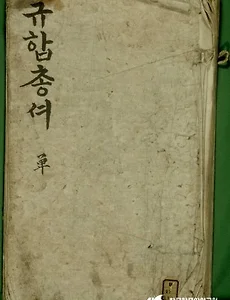 규합총셔
單